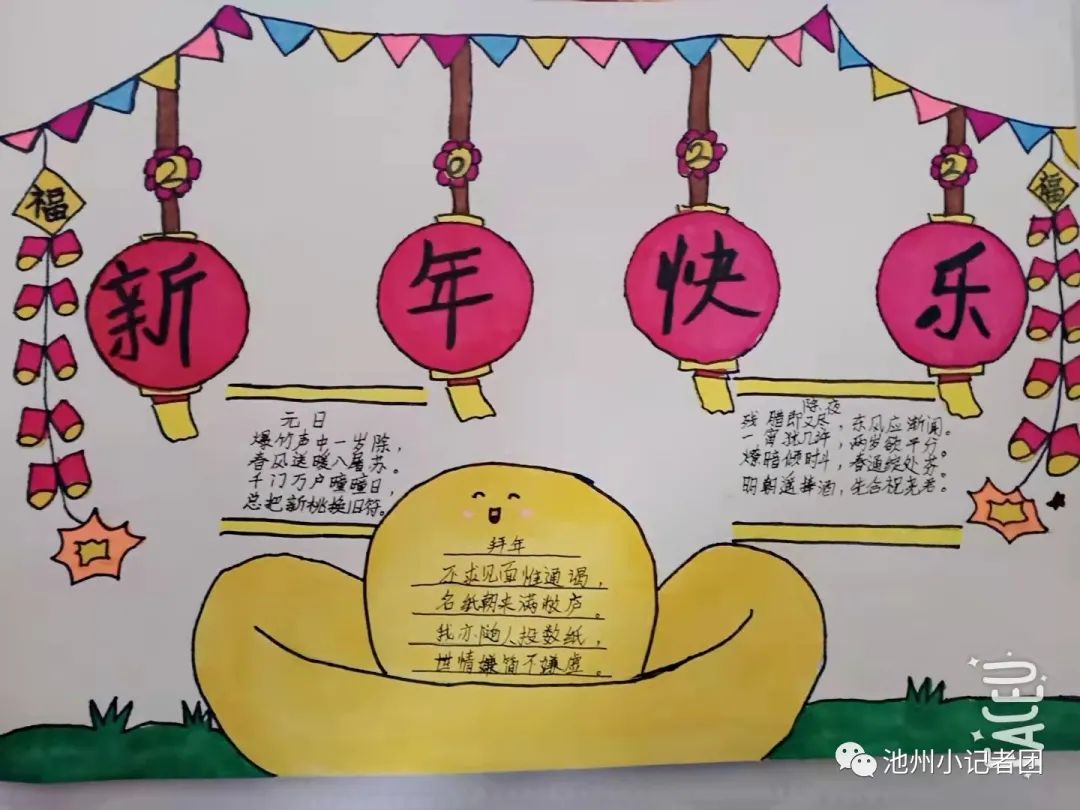 福
2
0
2
2
福
新
年
快
乐
元日
爆竹声中一岁除，
春风送暖入屠苏。
千门万户曈曈日，
总把新桃换旧符。
除夜
残腊即又尽，东风应渐闻。
一宵犹几许，两岁欲平分。
燎暗倾时斗，春通绽处芬。
明朝遥捧酒，先合祝尧君。
拜年
不求见面惟通谒，
名纸朝来满敝庐。
我亦随人投数纸，
世情嫌简不嫌虚。
FACEU
池州小记者团